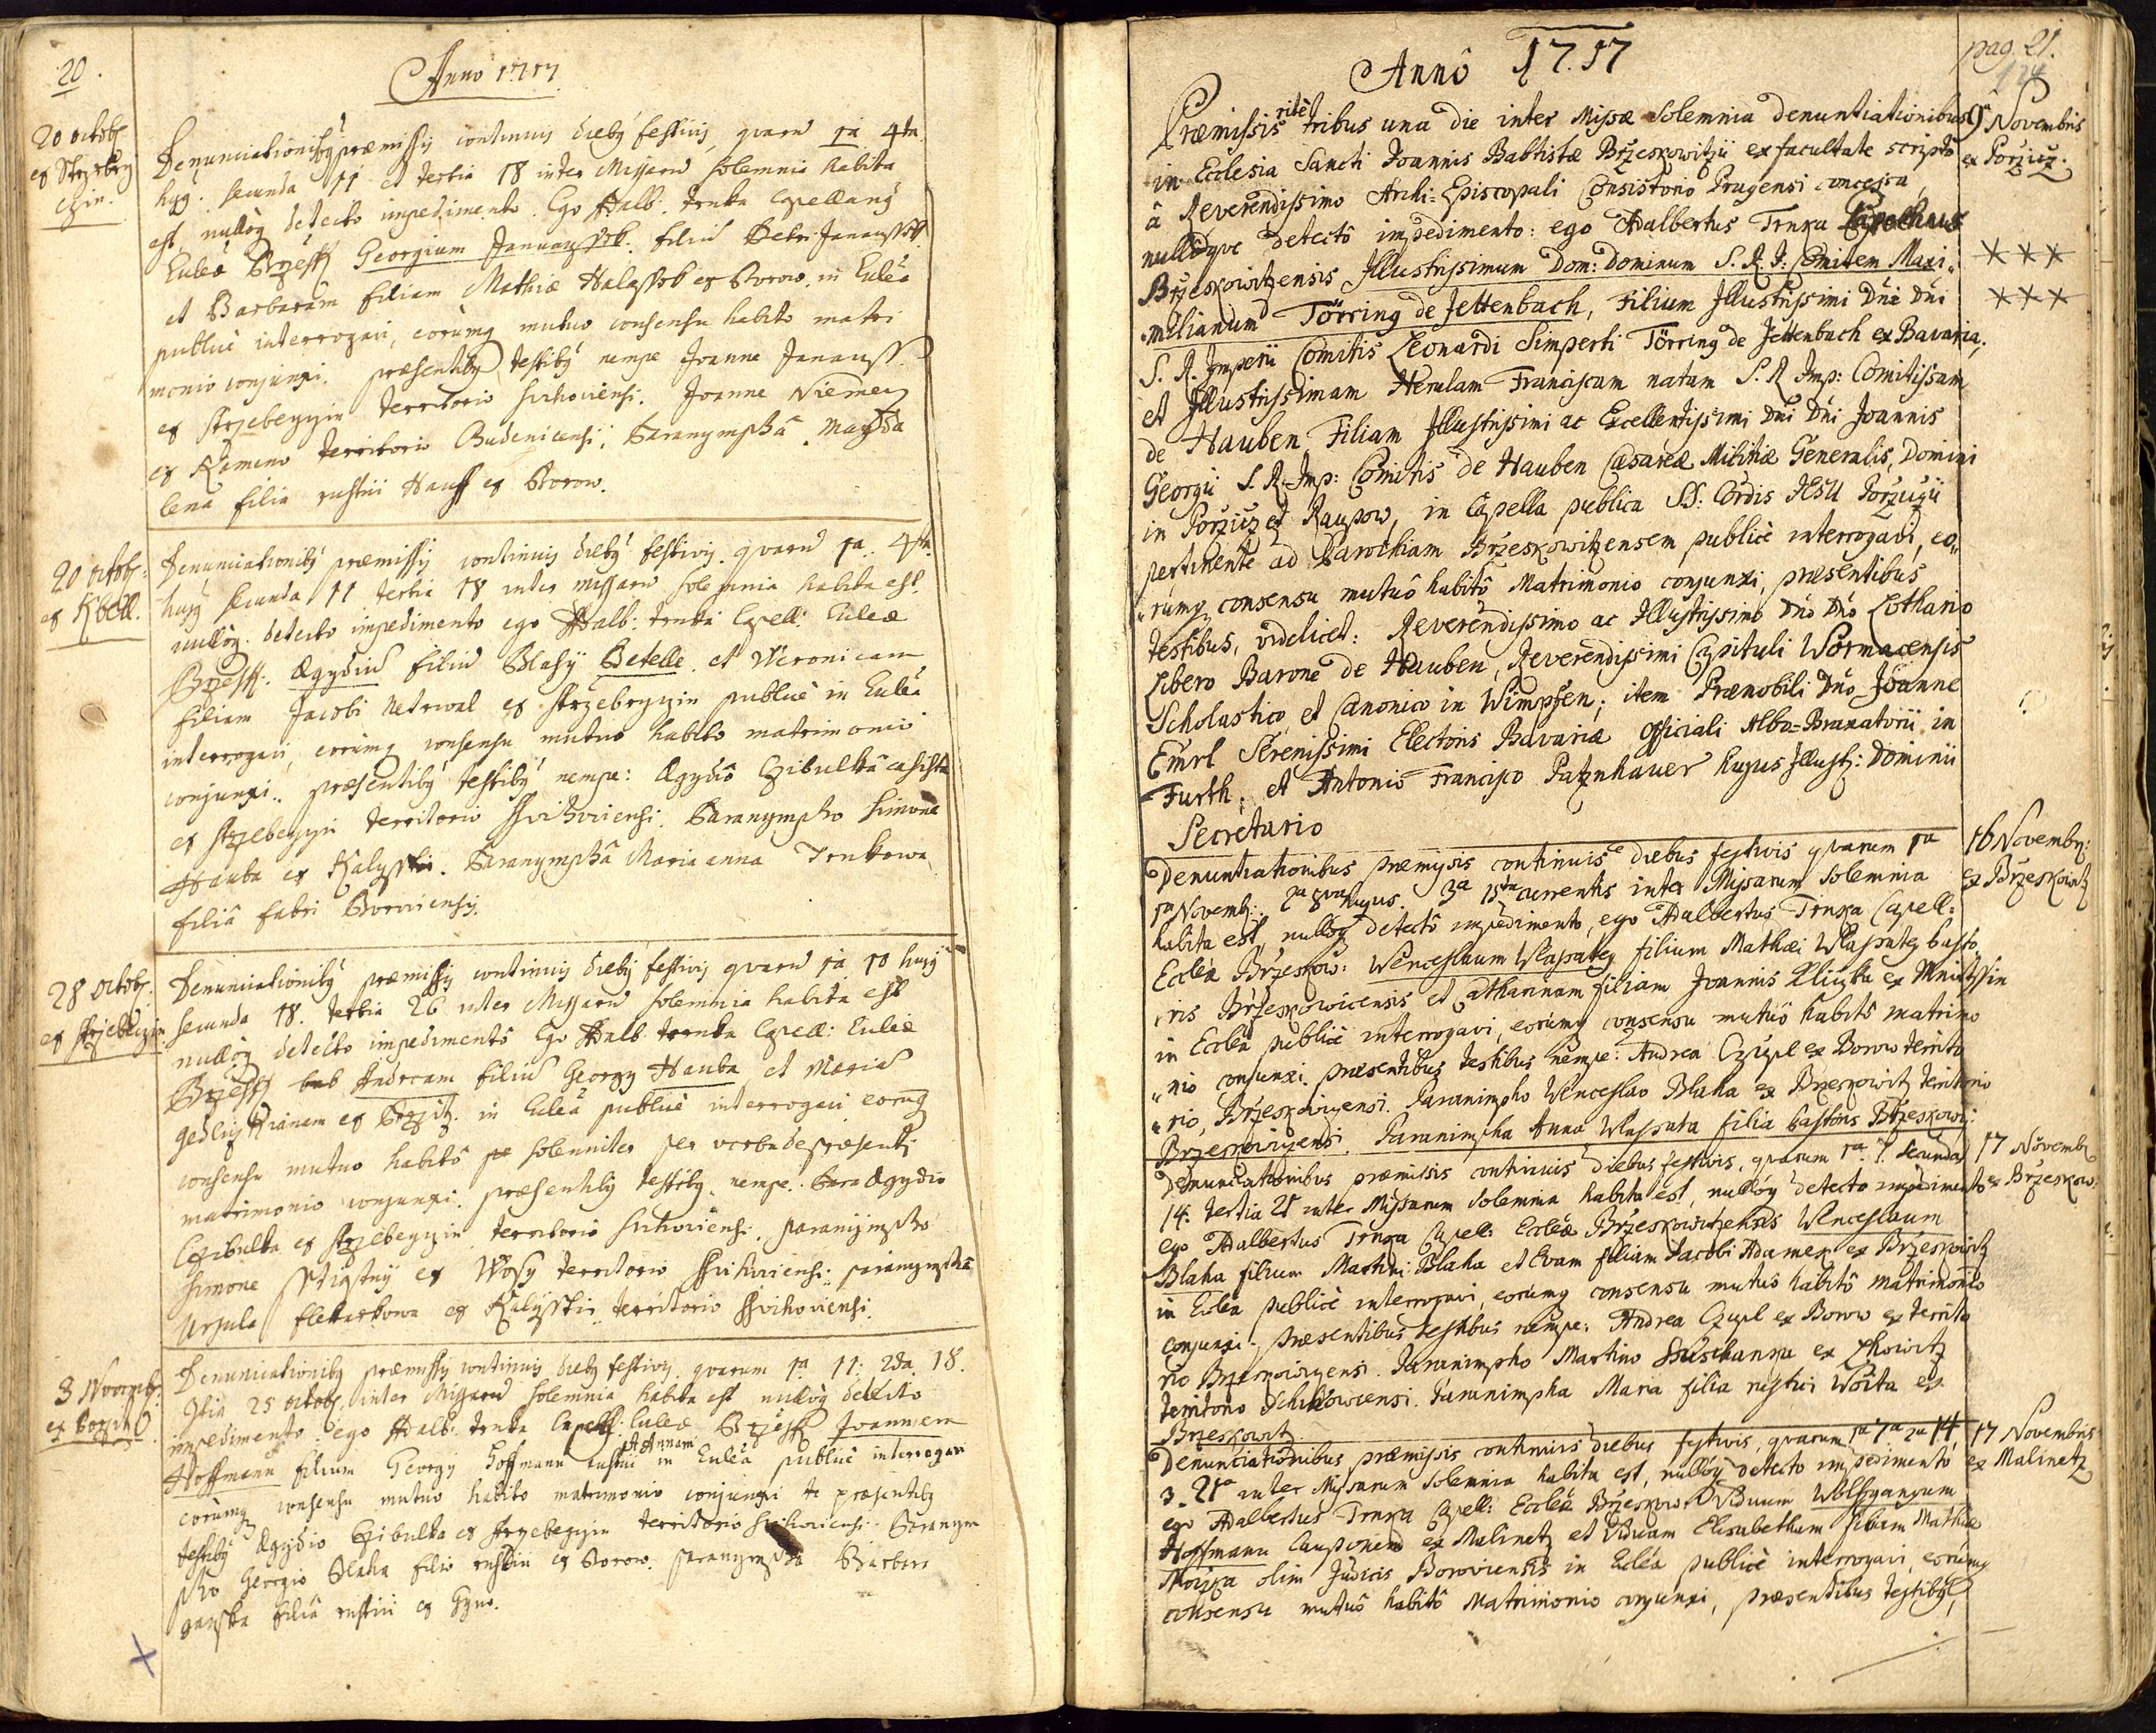 20.
Anno 1717
20 octobr
ex Strzebey
czin.
Denunciationibus præmissis continuis diebus festivis, quarum 1a 4ta
hujus secunda 11 et tertia 18 inter Missarum solemnia habita
est, nulloq detecto impedimento. Ego Adalb: trnka Capellanus
Eccleæ Brzesk Georgium Janaussek filiu Petri Janaussek
et Barbaram filiam Mathiæ Halassek ex Borow. in Ecclea
publice interrogavi, eorumq mutuo consensu habito matri
monio conjunxi. præsentibus testibus nempe Joanne Janauss
ex strzebeyczin territorio svihoviensi. Joanne Niemecz
ex Kameno territorio Budenicensi. Paranymphâ Magda
lena filia rustici Hanss ex Borow.
20 octobr:
ex Kbell.
Denunciationibus præmissis continuis diebus festivis. quarum 1a. 4ta.
hujus secunda 11 tertia 18 inter missarum solemnia habita est.
nulloq. detecto impedimento ego Adalb: trnka Capell: Eccleæ
Brzesk: Ægydium filiu Blasÿ Betelle. et Veronicam
filiam Jacobi Netrwal ex strzebeyczin publice in Ecclea
interrogavi, eorumq consensu mutuo habito matrimonio
conjunxi. præsentibus testibus nempe: Ægydio Czibulka casista
ex strzebeyczin territorio ssvihoviensi. Paranympho Simone
Hauba ex Kalyssti. Paranymphâ Maria anna Trnkowa
filiâ fabri Boroviensis.
28 octobr.
ex strzebeyczin.
Denunciationibus præmissis continuis diebus festivis quarum 1a 10 hujus
secunda 18. tertia 26 inter Missarum solemnia habita est
nulloq detecto impedimento Ego Adalb trnka Capell: Eccleæ
Brzesk Andream filiu Georgy Hauba et Mariam
ex Borzitz. in Ecclea publice interrogavi eorumq
consensu mutuo habito solenniter per verba de præsenti
matrimonio conjunxi. præsentibus testibus. nempe. Ægydio
Czibulka ex strzebeyczin territorio svihoviensi. paranympho
Simone sstiastny ex Wosy territorio ssvihoviensi: paranympha
Ursula flekarkowa ex Kalyssti: territorio ssvihoviensi.
3 Novemb:
ex borzitz
Denunciationibus præmissis continuis diebus festivis. quarum 1a. 11: 2da 18.
3tia 25 octobr. inter Missarum solemnia habita est nulloq detecto
impedimento: ego Adalb: trnka Capell: Eccleæ Brzesk Joannem
Hoffmann filium Georgy Hoffmann rustici et Annam in Ecclea publice interrogavi
eorumq consensu mutuo habito matrimonio conjunxi præsentibus
testibus Ægydio Czibulka ex strzebeyczin territorio svihoviensi. Paranym
pho Georgio Blaha filio rustici ex Borow. paranympha Barbara
filiâ rustici ex
Anno 17.17
pag. 21.
124
9 Novembris
ex Porzicz.
Præmissis ritè tribus una die inter Missæ Solemnia denuntiationibus
in Ecclesia Sancti Joannis Babtistæ Brzeskowitzii ex facultate scriptô
â Reverendissimo Archi=Episcopali Consistorio Pragensi concessa,
nullôqve detectô impedimento: ego Adalbertus Trnka Capellanus
Brzeskowitzensis Illustrissimum Dom: Dominum S. R. J: Comitem Maxi"
"milianum Törring de Jettenbach, Filium Illustrissimi Dni Dni
S. R. Imperii Comitis Leonardi Simperti Törring de Jettenbach ex Bavaria;
et Illustrissimam Herulam Franciscam natam S. R Imp: Comitissam
de Hauben Filiam Illustrissimi ac Excellentissimi Dni Dni Joannis
Georgii S. R. Imp: Comitis de Hauben Cæsareæ Militiæ Generalis, Domini
in Porzicz et Raupow, in Capella publica SS: Cordis JESU Porzizii
pertinente ad Parochiam Brzeskowitzensem publicè interrogavi, eo"
"rumq consensu mutuô habitô Matrimonio conjunxi, præsentibus
testibus, videlicet: Reverendissimo ac Illustrissimo Dno Dno Lothario
Libero Barone de Hauben, Reverendissimi Capituli Wormacensis
Scholastico et Canonico in Wimpfen; item Prænobili Dno Joanne
Emrl Serenissimi Electoris Bavariæ Officiali Albo=Braxatorii in
Furth, et Antonio Francisco Patznhauer hujus Illust: Dominii
Secretario
16 Novembr:
ex Brzeskowitz
Denuntiationibus præmissis continuis diebus festivis quarum 1a
1a Novemb: 2a 8va hujus. 3a 15ta currentis inter Missarum Solemnia
habita est, nulloq detectô impedimento, ego Adalbertus Trnka Capell:
Eccleæ Brzeskow: Wenceslaum Wlassatey filium Mathæi Wlassatey basto
ris Brzeskowicensis et Catharinam filiam Joannis Kliczka ex Mnichssin
in Ecclea publicè interrogavi, eorumq consensu mutuô habitô matrimo
"nio conjunxi. præsentibus testibus nempe: Andrea Czypl ex Borow territo
"rio, Brzeskovicensi. Paranimpho Wenceslao Blaha ex Brzeskowitz territorio
Brzeskovicensi. Paranimpha Anna Wlassata filia bastoris Brzeskowi:
17 Novembr
ex Brzeskow:
Denunciationibus præmissis continuis diebus festivis, quarum 1a 7. secunda
14. tertia 21 inter Missarum Solemnia habita est, nulloq detecto impedimento
ego Adalbertus Trnka Capell: Eccleæ Brzeskowitzensis Wenceslaum
Blaha filium Martini Blaha et Evam filiam Jacobi Adamek ex Brzeskowitz
in Eclea publicè interrogavi, eorumq consensu mutuô habitô Matrimonio
conjunxi. Præsentibus testibus nempe: Andrea Czypl ex Borow ex territo
rio Brzeskovicensi. Paranimpho Martino ex
territorio Schihowiensi. Paranimpha Maria filia rustici Woita ex
Brzeskowitz
17 Novembris
ex Malinetz
Denunciationibus præmissis continuis diebus festivis, quarum 1a 7a 2a 14
3. 21a inter Missarum Solemnia habita est, nulloq detecto impedimento
ego Adalbertus Trnka Capell: Eccleæ Brzeskow: Viduum Wolfgangum
Hoffmann Cauponem ex Malinetz et Viduam Elisabetham filiam Mathiæ
olim Judicis Boroviensis in Eclea publicè interrogavi, eorumq
consensu mutuô habitô Matrimonio conjunxi, præsentibus testibus,